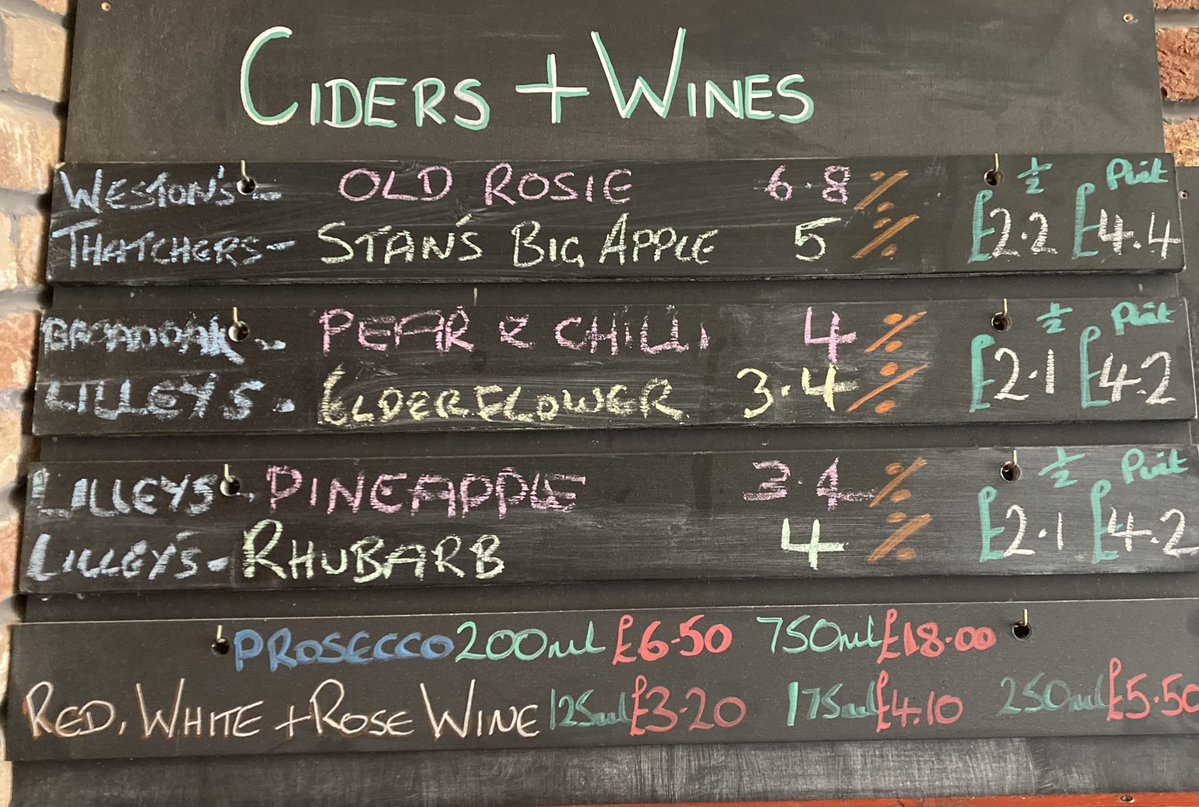 CIDERS + WINES
WESTON'S - OLD ROSIE 6.8% ½ Pint
THATCHERS - STAN'S BIG APPLE 5% £2.2 £4.4
BROADOAK - PEAR & CHILLI 4% ½ Pint
LILLEYS - ELDERFLOWER 3.4% £2.1 £4.2
LILLEYS - PINEAPPLE 3.4% ½ Pint
LILLEY'S - RHUBARB 4% £2.1 £4.2
PROSECCO 200ml £6.50 750ml £18.00
RED, WHITE + ROSE WINE 125ml £3.20 175ml £4.10 250ml £5.50